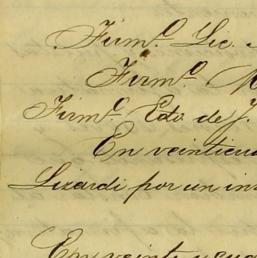 Firmº. Lic.
Firmº.
Firmº. Edo. de J.
En veinticua
Lizardi por un ins
En veinte y cua